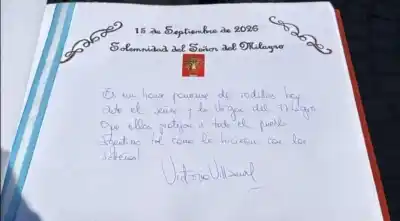 15 de Septiembre de 2025
Solemnidad del Señor del Milagro
Es un honor ponerme de rodillas hoy
ante el señor y la Virgen del Milagro
Que ellos protejan a todo el pueblo
Argentino tal como lo hicieron con los
salteños!
Victoria Villarruel